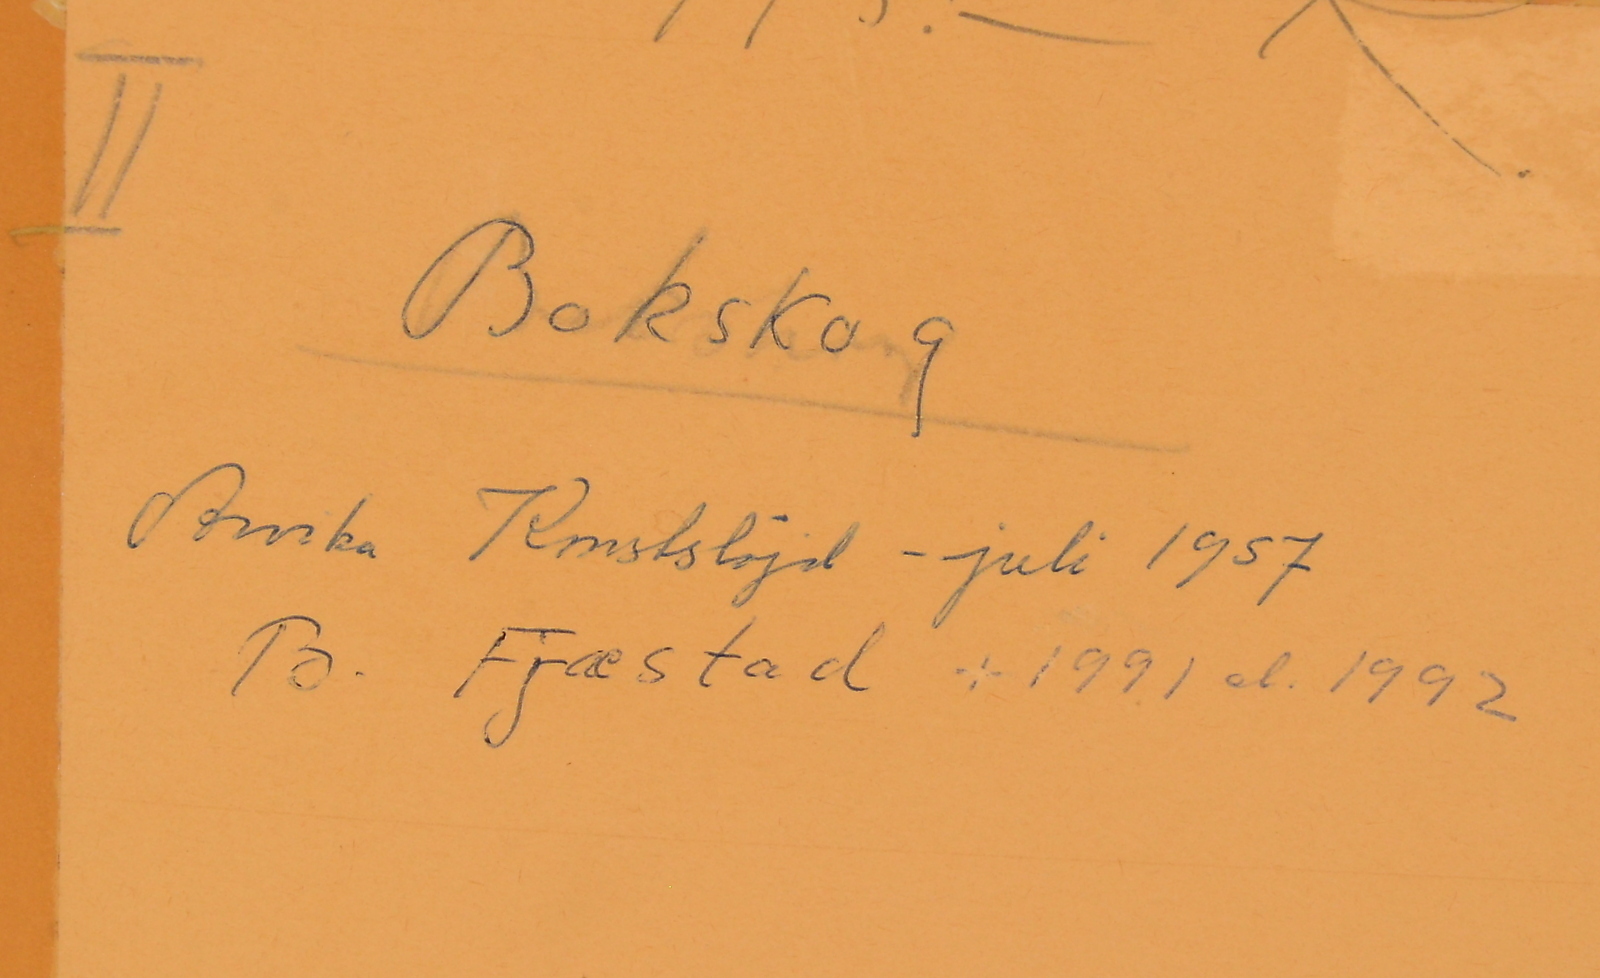 II
Bokskog
Arvika Konstslöjd - juli 1957
Bo. Fjæstad + 1991 el. 1992